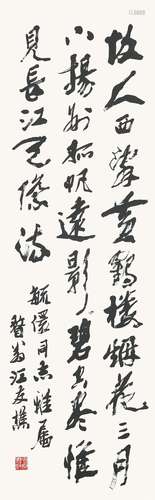 故人西辭黃鶴樓烟花三月
下揚州孤帆遠影碧空盡惟
見長江天際流
毓同志雅屬
瞽翁江友樵